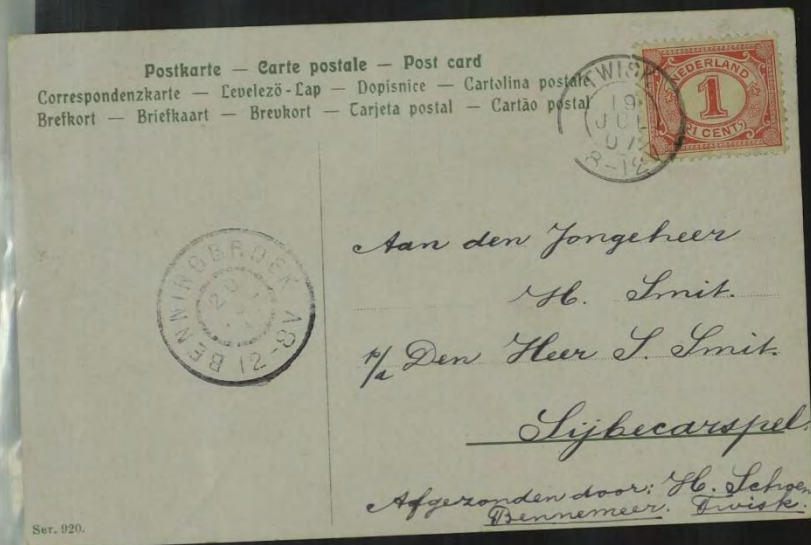 Postkarte — Carte postale — Post card
Correspondenzkarte — Levelezö-Lap — Dopisnice — Cartolina postale
Brefkort — Briefkaart — Brevkort — Tarjeta postal — Cartão postal
TWISK
19
JUL
07
8-12V
NEDERLAND
1
(1 CENT)
BENNINGBROEK
20
12-8V
Aan den Jongeheer
H. Smit.
p/a Den Heer S. Smit.
Sijbecarspel.
Afgezonden door: H. Schoen
Bennemeer. Twisk.
Ser. 920.